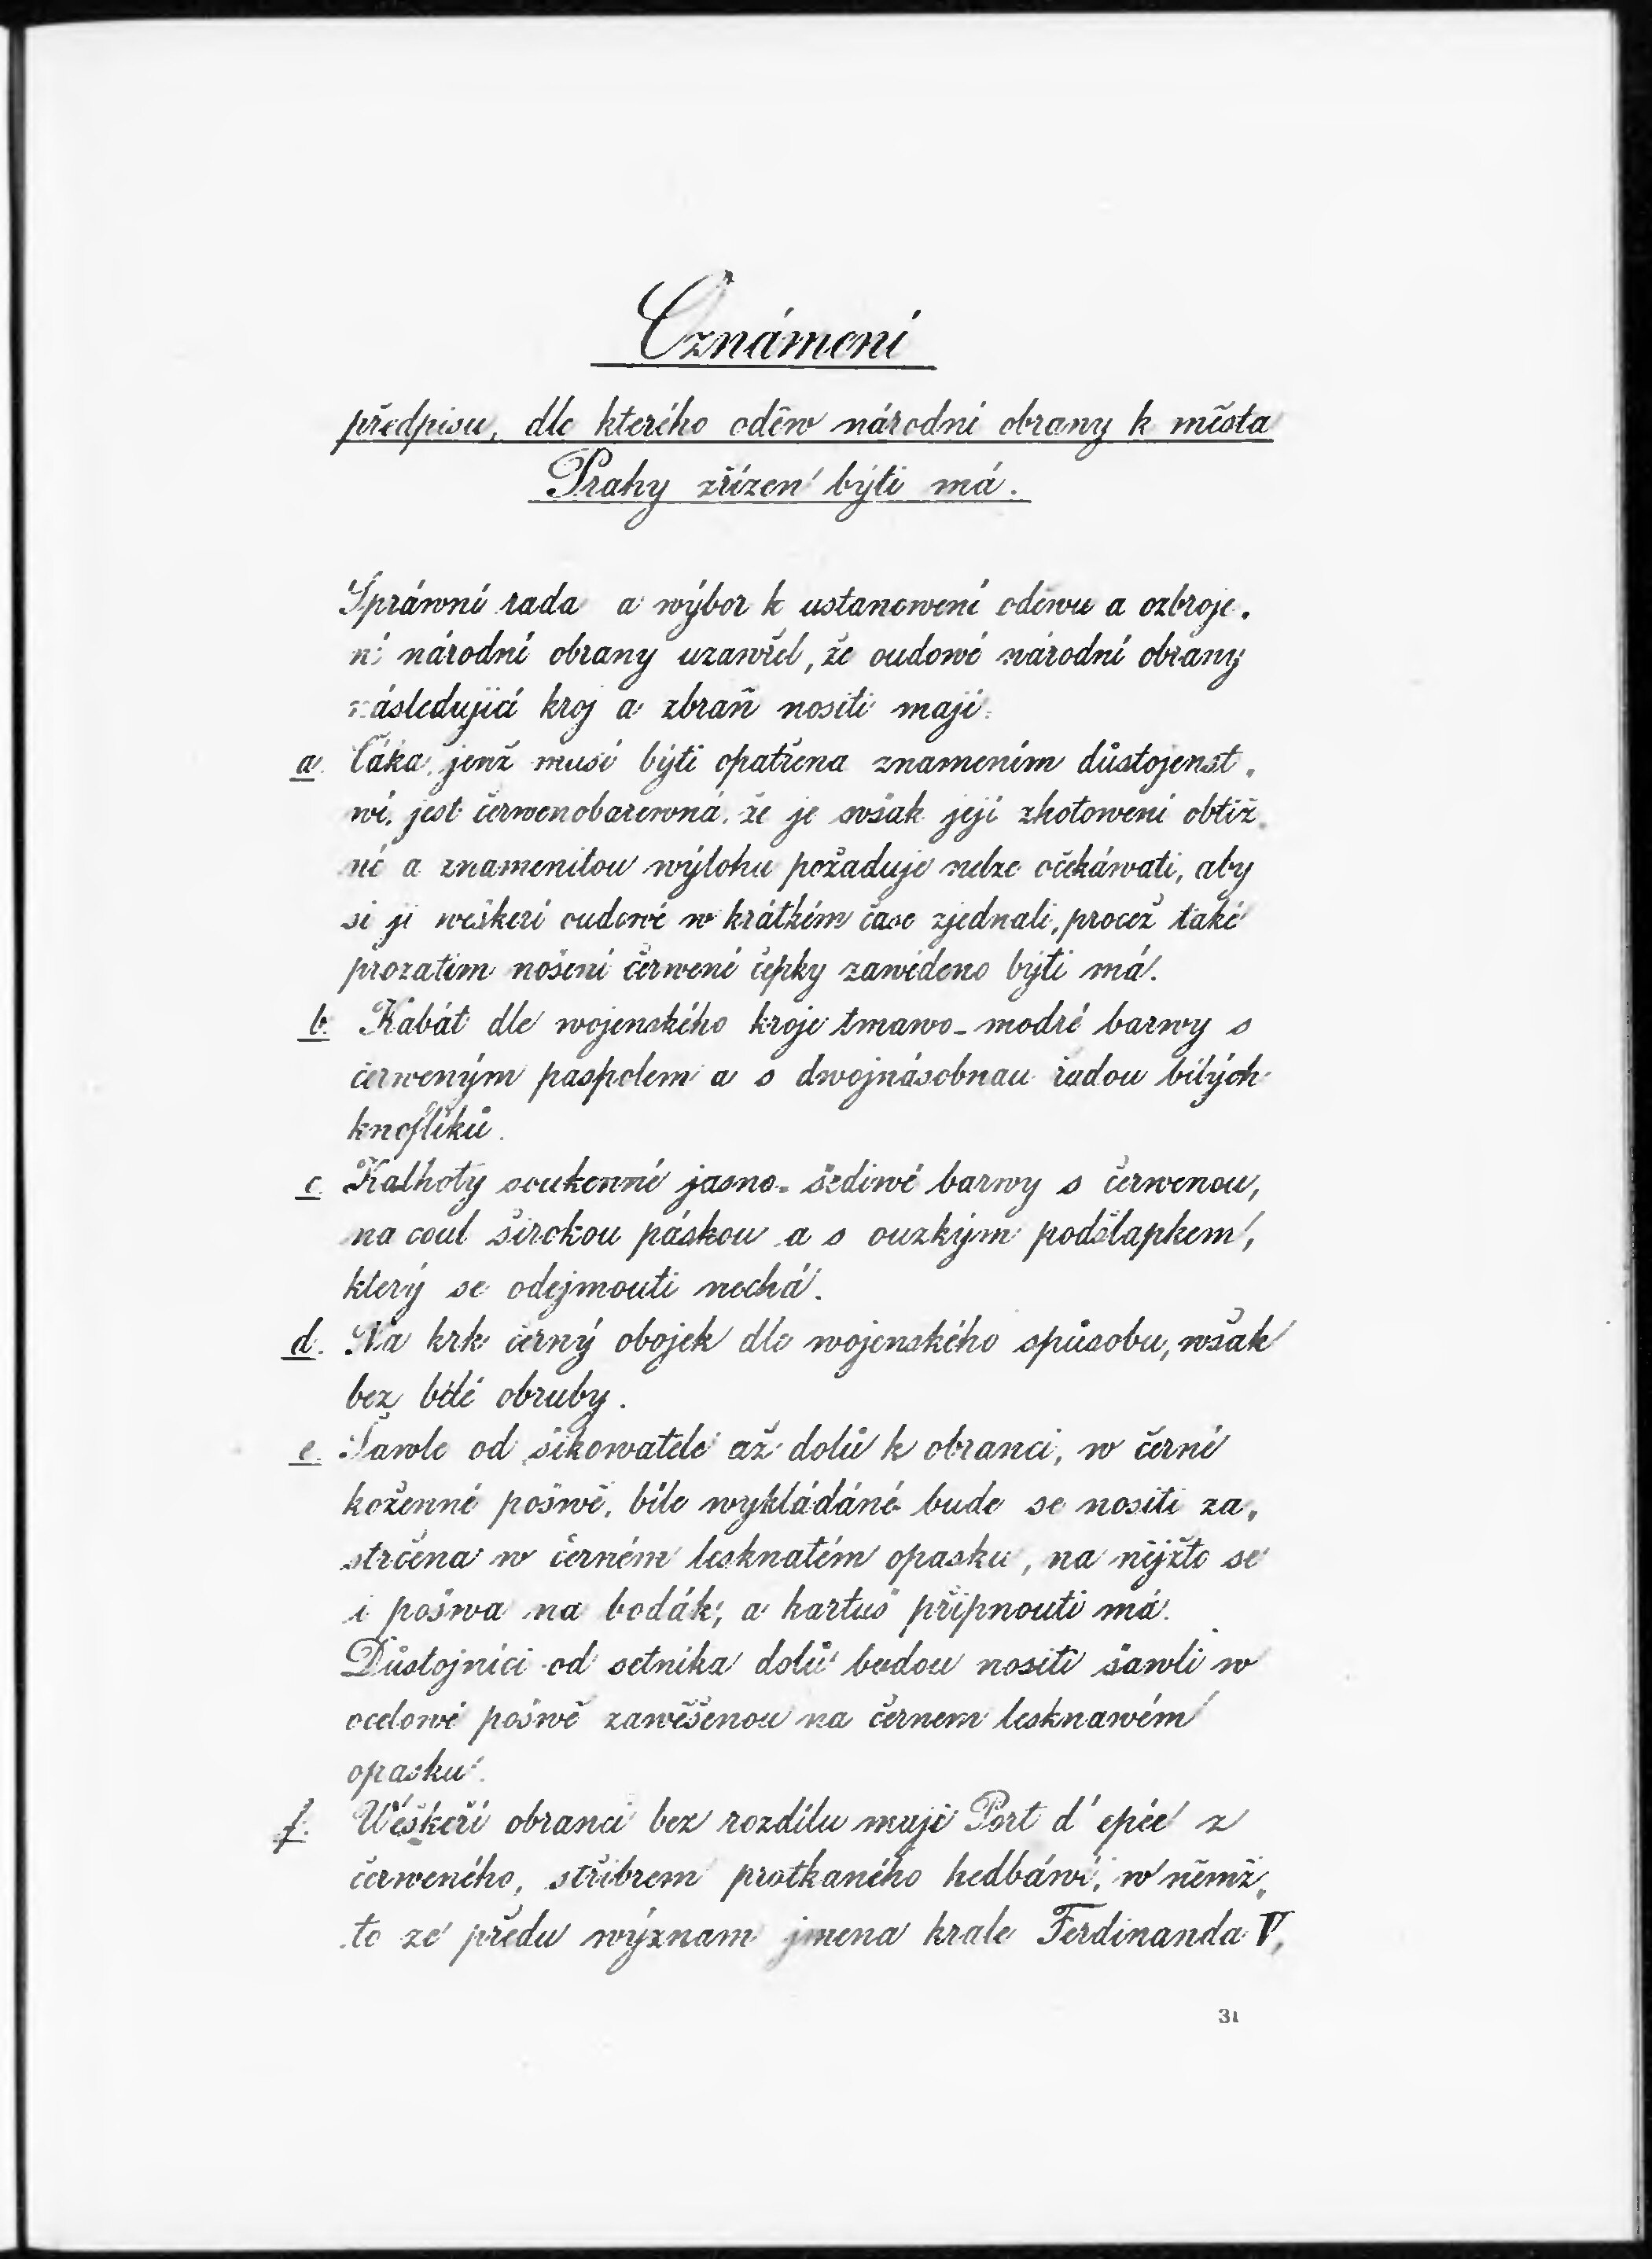 Oznámení
předpisu, dle kterého oděw národní obrany k města
Prahy zřízen býti má.
Spráwní rada a wýbor k ustanowení oděwu a ozbroje-
ní národní obrany uzawřel, že oudowé národní obrany
následující kroj a zbraň nositi mají.
a. Čáka, jenž musí býti opatřena znamením důstojenst-
wí, jest červenobarewná, že je wšak její zhotowení obtíž-
né a znamenitou wýlohu požaduje nelze očekáwati, aby
si ji weškeří oudowé w krátkém čase zjednali, pročež také
prozatím nošení čerwené čepky zawedeno býti má.
b. Kabát dle wojenského kroje tmawo-modré barwy s
čerweným paspolem a s dwojnásobnau řadou bílých
knoflíků.
c. Kalhoty soukenné jasno-šediwé barwy s čerwenou,
na coul širokou páskou a s ouzkým podšlapkem,
který se odejmouti nechá.
d. Na krk černý obojek dle wojenského spůsobu, wšak
bez bílé obruby.
e. Šawle od šikowatele až dolů k obranci, w černé
koženné pošwě, bíle wykládáné bude se nositi za-
strčena w černém lesknatém opasku, na nějžto se
i pošwa na bodák, a kartuš připnouti má.
Důstojníci od setníka dolů budou nositi šawli w
ocelowé pošwě zawěšenou na černem lesknawém
opasku.
f. Weškeří obranci bez rozdílu mají Port d'epée z
čerweného, stříbrem protkaného hedbáwí, w němž-
to ze předu wýznam jmena krale Ferdinanda V,
31